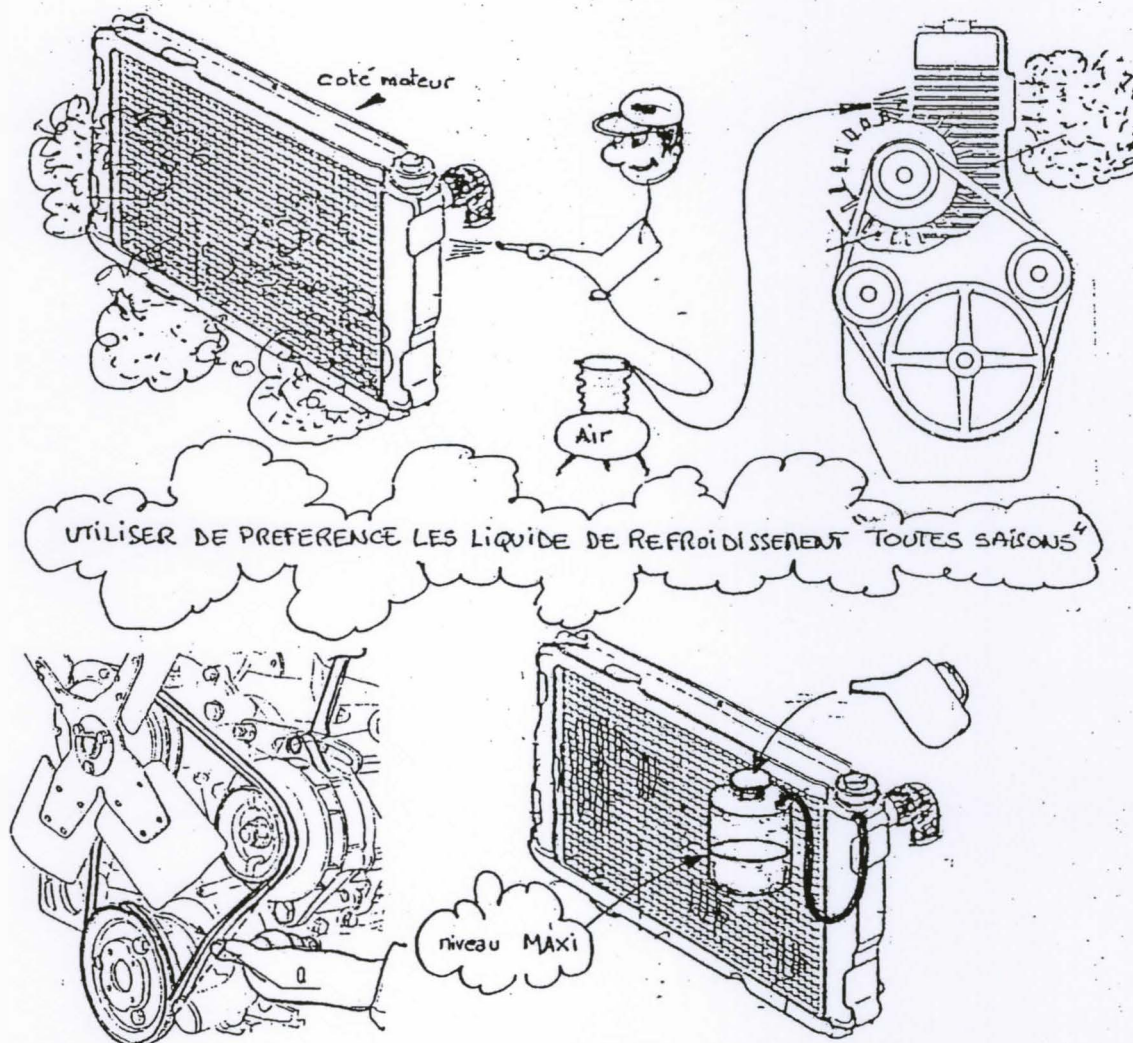 coté moteur
Air
UTILISER DE PREFERENCE LES LIQUIDE DE REFROIDISSEMENT "TOUTES SAISONS"
niveau MAXI